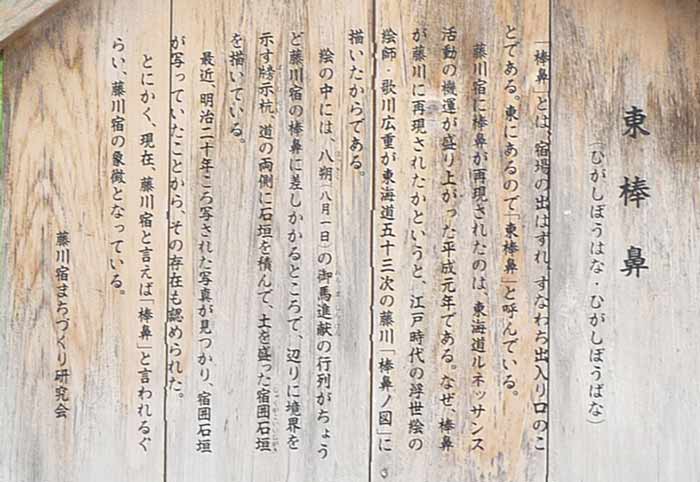 東棒鼻
(ひがしぼうはな・ひがしぼうばな)
「棒鼻」とは、宿場の出はずれ、すなわち出入り口のこ
とである。東にあるので「東棒鼻」と呼んでいる。
藤川宿に棒鼻が再現されたのは、東海道ルネッサンス
活動の機運が盛り上がった平成元年である。なぜ、棒鼻
が藤川に再現されたかというと、江戸時代の浮世絵の
絵師・歌川広重が東海道五十三次の藤川「棒鼻ノ図」に
描いたからである。
絵の中には、八朔(八月一日)の御馬進献の行列がちょう
ど藤川宿の棒鼻に差しかかるところで、辺りに境界を
示す牓示杭、道の両側に石垣を積んで、土を盛った宿囲石垣
を描いている。
最近、明治二十年ころ写された写真が見つかり、宿囲石垣
が写っていたことから、その存在も認められた。
とにかく、現在、藤川宿と言えば「棒鼻」と言われるぐ
らい、藤川宿の象徴となっている。
藤川宿まちづくり研究会